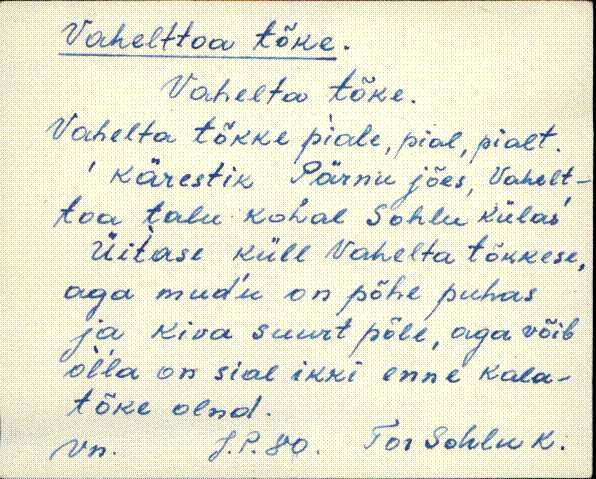 Vahelttoa tõke.
Vahelta tõke.
Vahelta tõkke piale, pial, pialt.
kärestik Pärnu jões, Vahelt-
toa talu kohal Sohlu külas
Üitase küll Vahelta tõkkese,
aga mud'u on põhe puhas
ja kiva suurt põle, aga võib
olla on sial ikki enne kala-
tõke olnd.
Vn. J.P. 80. Tor Sohlu k.